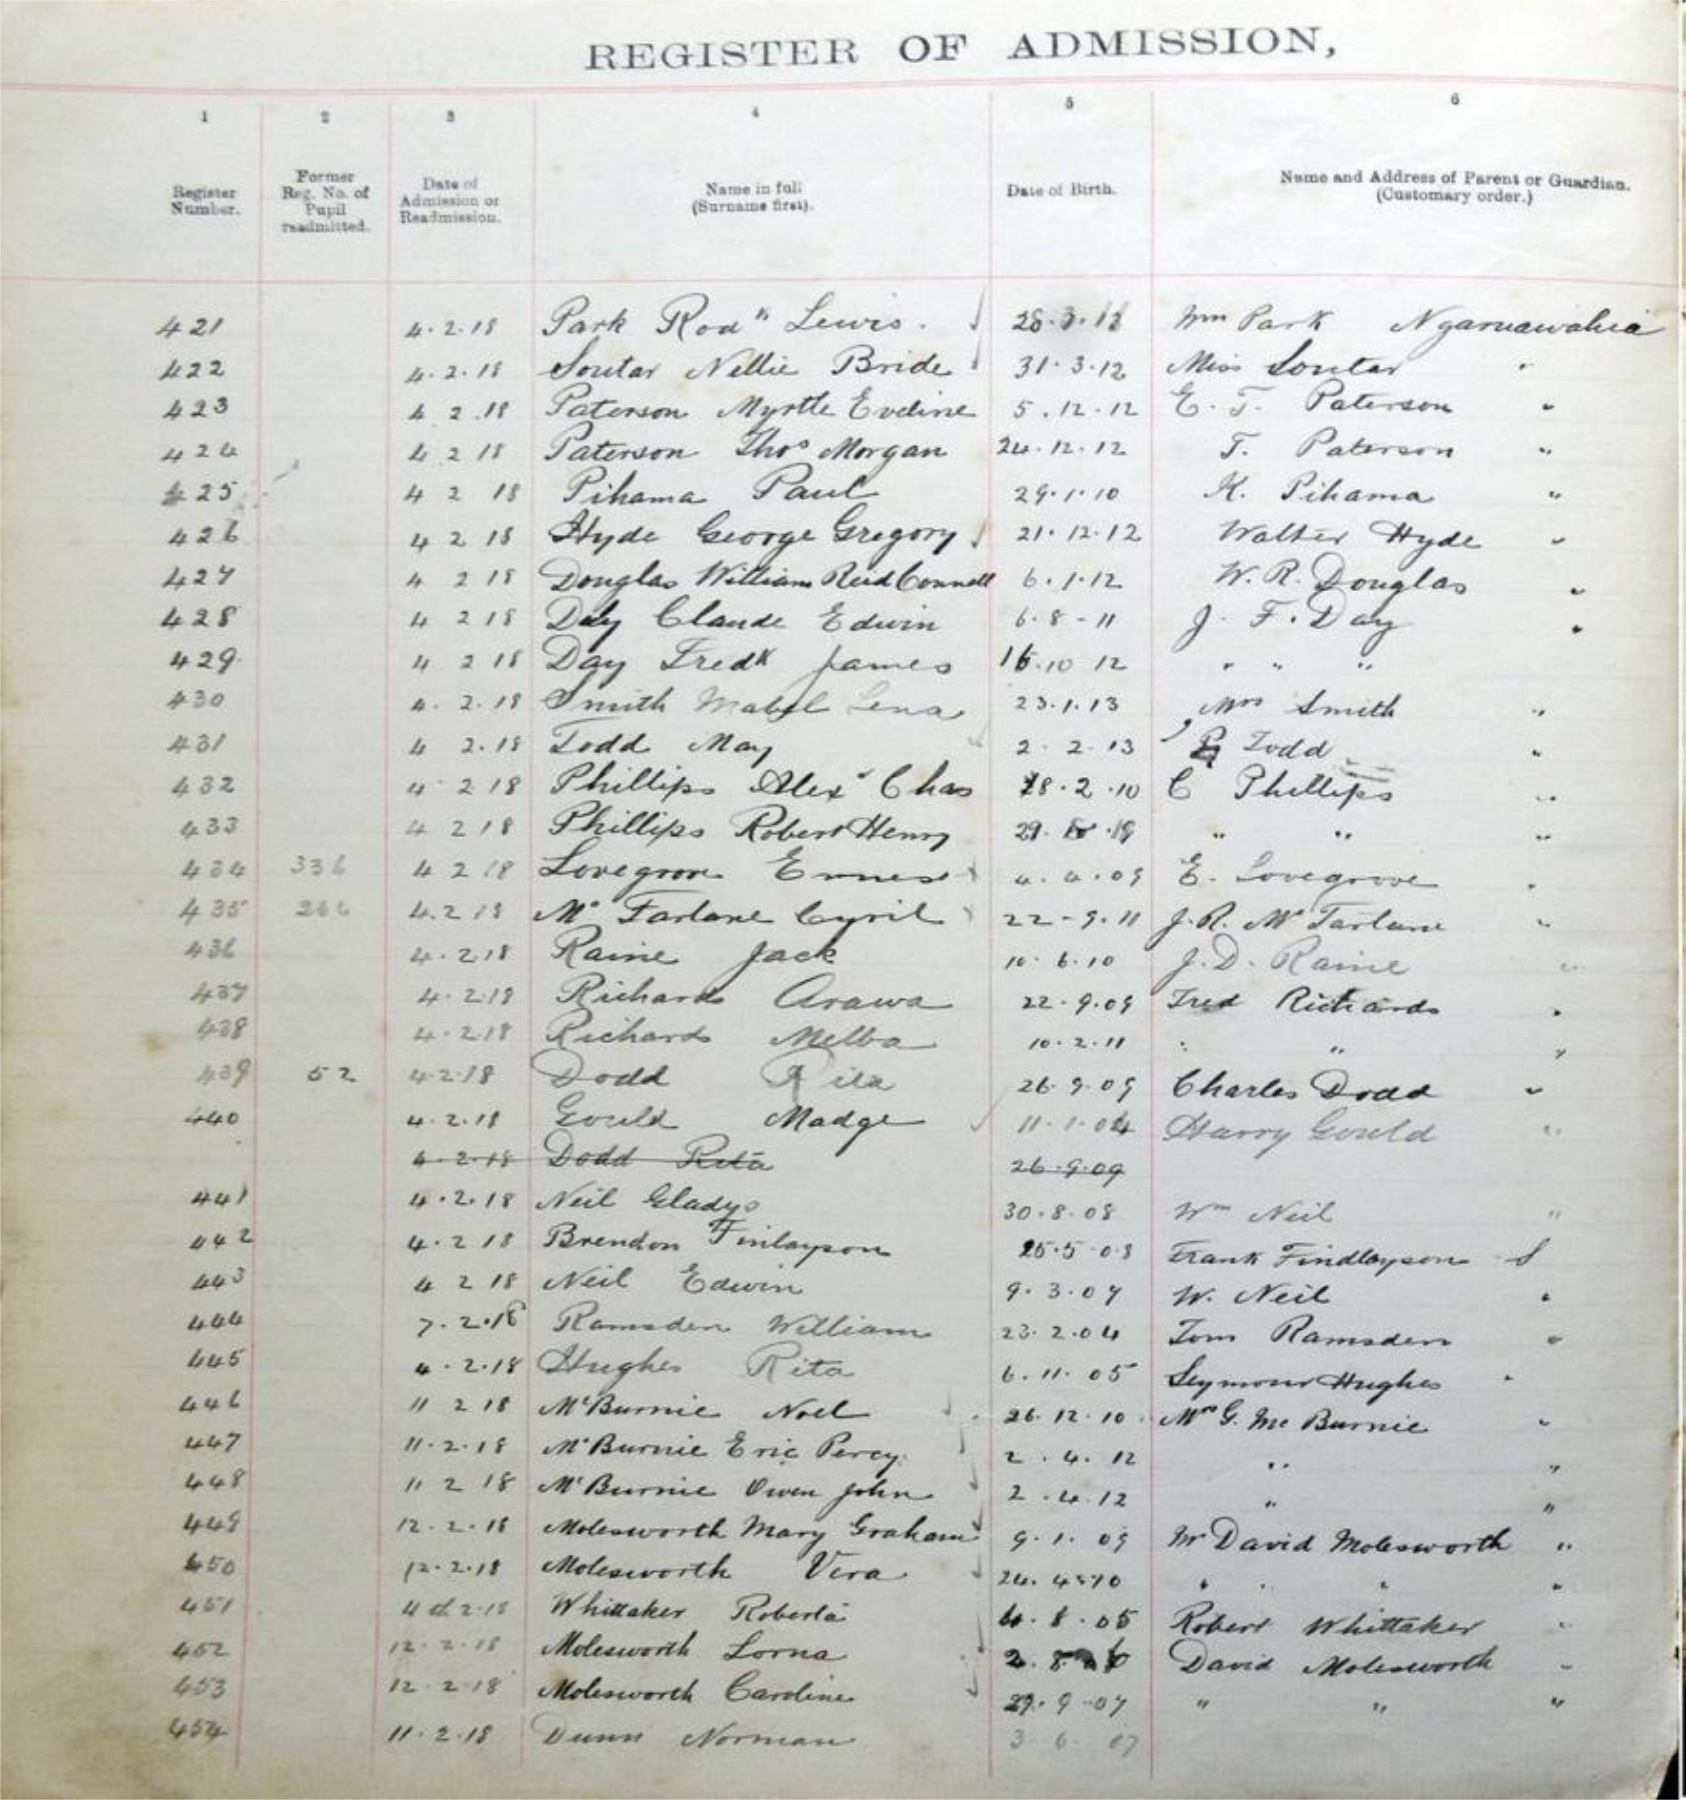 REGISTER OF ADMISSION,
1 2 3 4 5 6
Register Number. Former Reg. No. of Pupil readmitted. Date of Admission or Readmission. Name in full (Surname first). Date of Birth. Name and Address of Parent or Guardian. (Customary order.)
421 4.2.18 Park Rodk Lewis. 28.3.12 Wm Park Ngaruawahia
422 4.2.18 Soutar Nellie Bride 31.3.12 Miss Soutar "
423 4 2.18 Paterson Myrtle Eveline 5.12.12 E. T. Paterson "
424 4 2 18 Paterson Thos Morgan 24.12.12 T. Paterson "
425 4 2 18 Pihama Paul 29.1.10 K. Pihama "
426 4 2 18 Hyde George Gregory 21.12.12 Walter Hyde "
427 4 2 18 Douglas William Reid Connell 6.1.12 W. R. Douglas "
428 4 2 18 Day Claude Edwin 6.8-11 J. F. Day "
429 4 2 18 Day Fredk James 16.10 12 " " "
430 4.2.18 Smith Mabel Lena 23.1.13 Mrs Smith "
431 4 2.18 Todd May 2.2.13 Todd "
432 4 2 18 Phillips Alexr Chas 18.2.10 C Phillips "
433 4 2 18 Phillips Robert Henry 29. " " "
434 336 4 2 18 Lovegrove Ernest 4.4.09 E. Lovegrove "
435 266 4.2 18 Mc Farlane Cyril 22-9.11 J. R. Mc Farlane "
436 4.2.18 Raine Jack 10.6.10 J. D. Raine "
437 4.2.18 Richards Arawa 22.9.09 Fred Richards "
438 4.2.18 Richards Melba 10.2.11 " " "
439 52 4.2.18 Dodd Rita 26.9.09 Charles Dodd "
440 4.2.18 Gould Madge 11.1.04 Harry Gould "
4.2.18 Dodd Rita 26.9.09
441 4.2.18 Neil Gladys 30.8.08 Wm Neil "
442 4.2 18 Brendon Finlayson 25.5.08 Frank Findlayson
443 4 2 18 Neil Edwin 9.3.07 W. Neil "
444 7.2.18 Ramsden William 23.2.04 Tom Ramsden "
445 4.2.18 Hughes Rita 6.11.05 Seymour Hughes "
446 11 2 18 McBurnie Noel 26.12.10 Mrs G. Mc Burnie "
447 11.2.18 McBurnie Eric Percy. 2.4.12 " "
448 11 2 18 McBurnie Owen John 2.4.12 " "
449 12.2.18 Molesworth Mary Graham 9.1.09 Mr David Molesworth "
450 12.2.18 Molesworth Vera 24.4.10 " " " "
451 2.18 Whittaker Roberta 4.8.05 Robert Whittaker "
452 12.2.18 Molesworth Lorna 2.8. David Molesworth "
453 12.2.18 Molesworth Caroline 29.9.07 " " "
454 11.2.18 Dunn Norman 3 6. 07